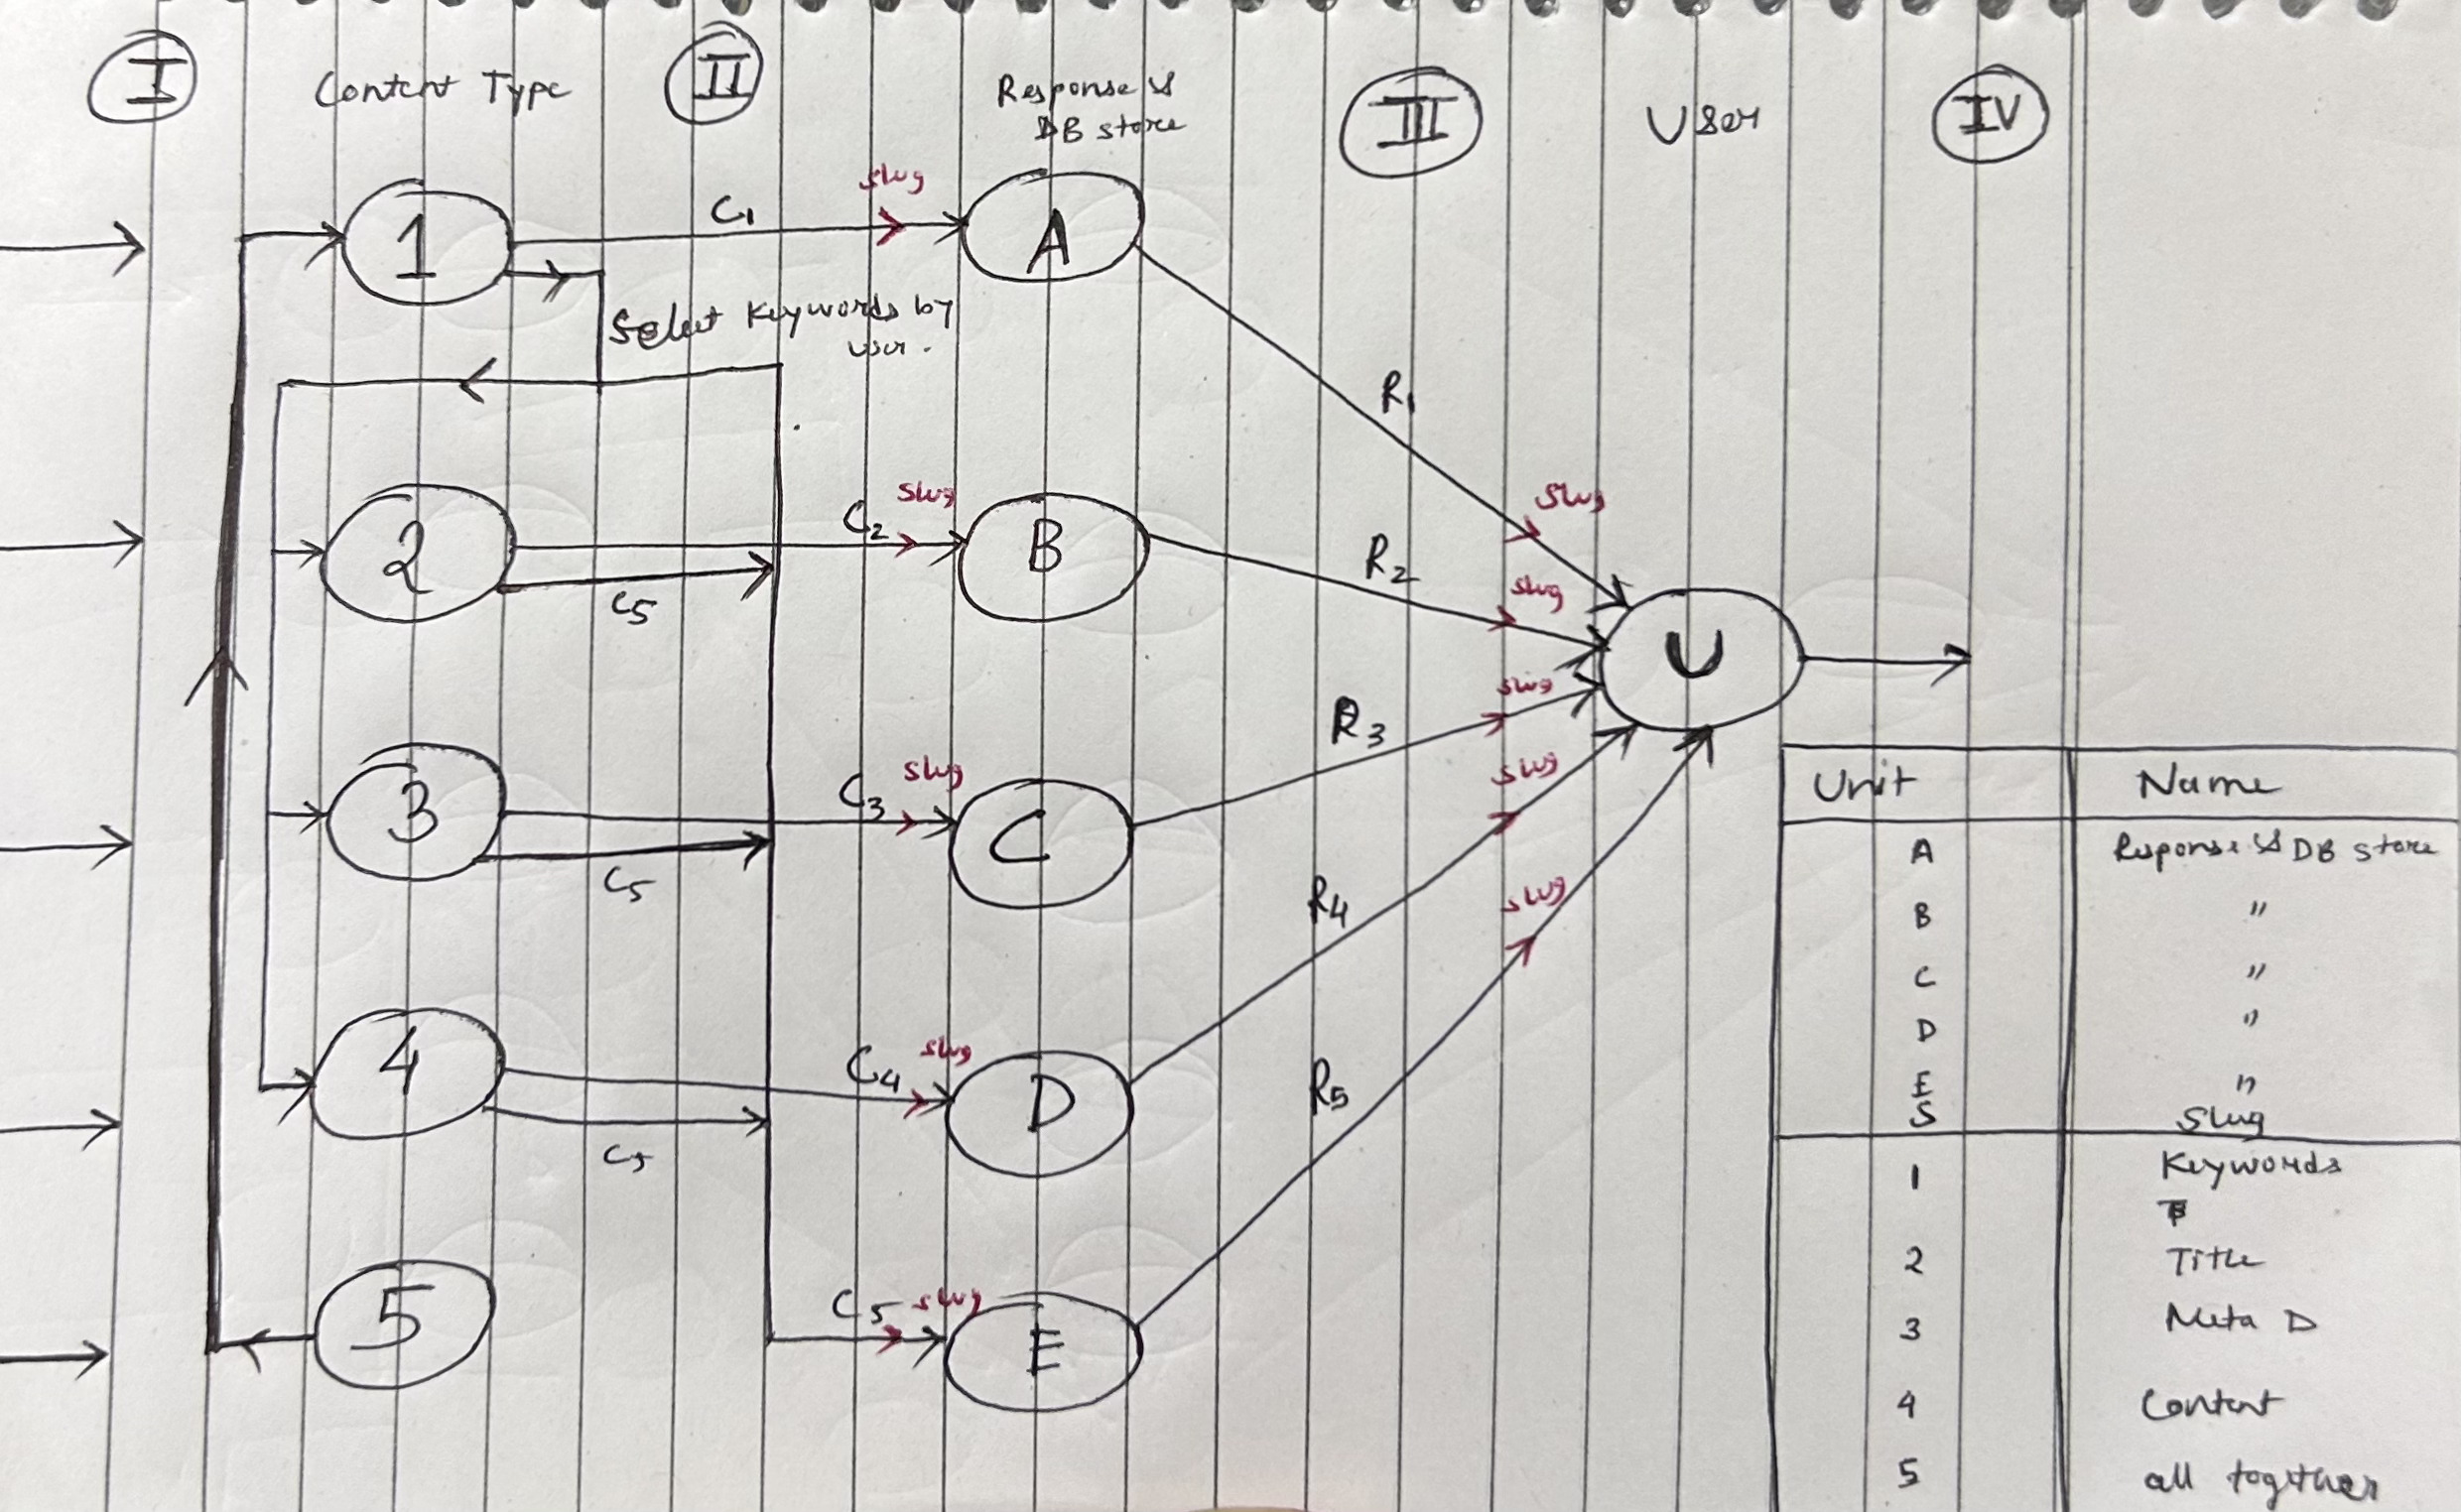 I Content Type II Response & III User IV
DB store
slug
C1
1 A
Select Keywords by
user.
R1
slug
C2 slug
2 B
R2
slug
C5
U
slug
R3
slug
C3 slug
3 C
C5
R4
slug
C4 slug
4 D
C5
R5
C5 slug
5 E
Unit Name
A Response & DB store
B "
C "
D "
E "
S Slug
1 Keywords
2 Title
3 Meta D
4 Content
5 all together